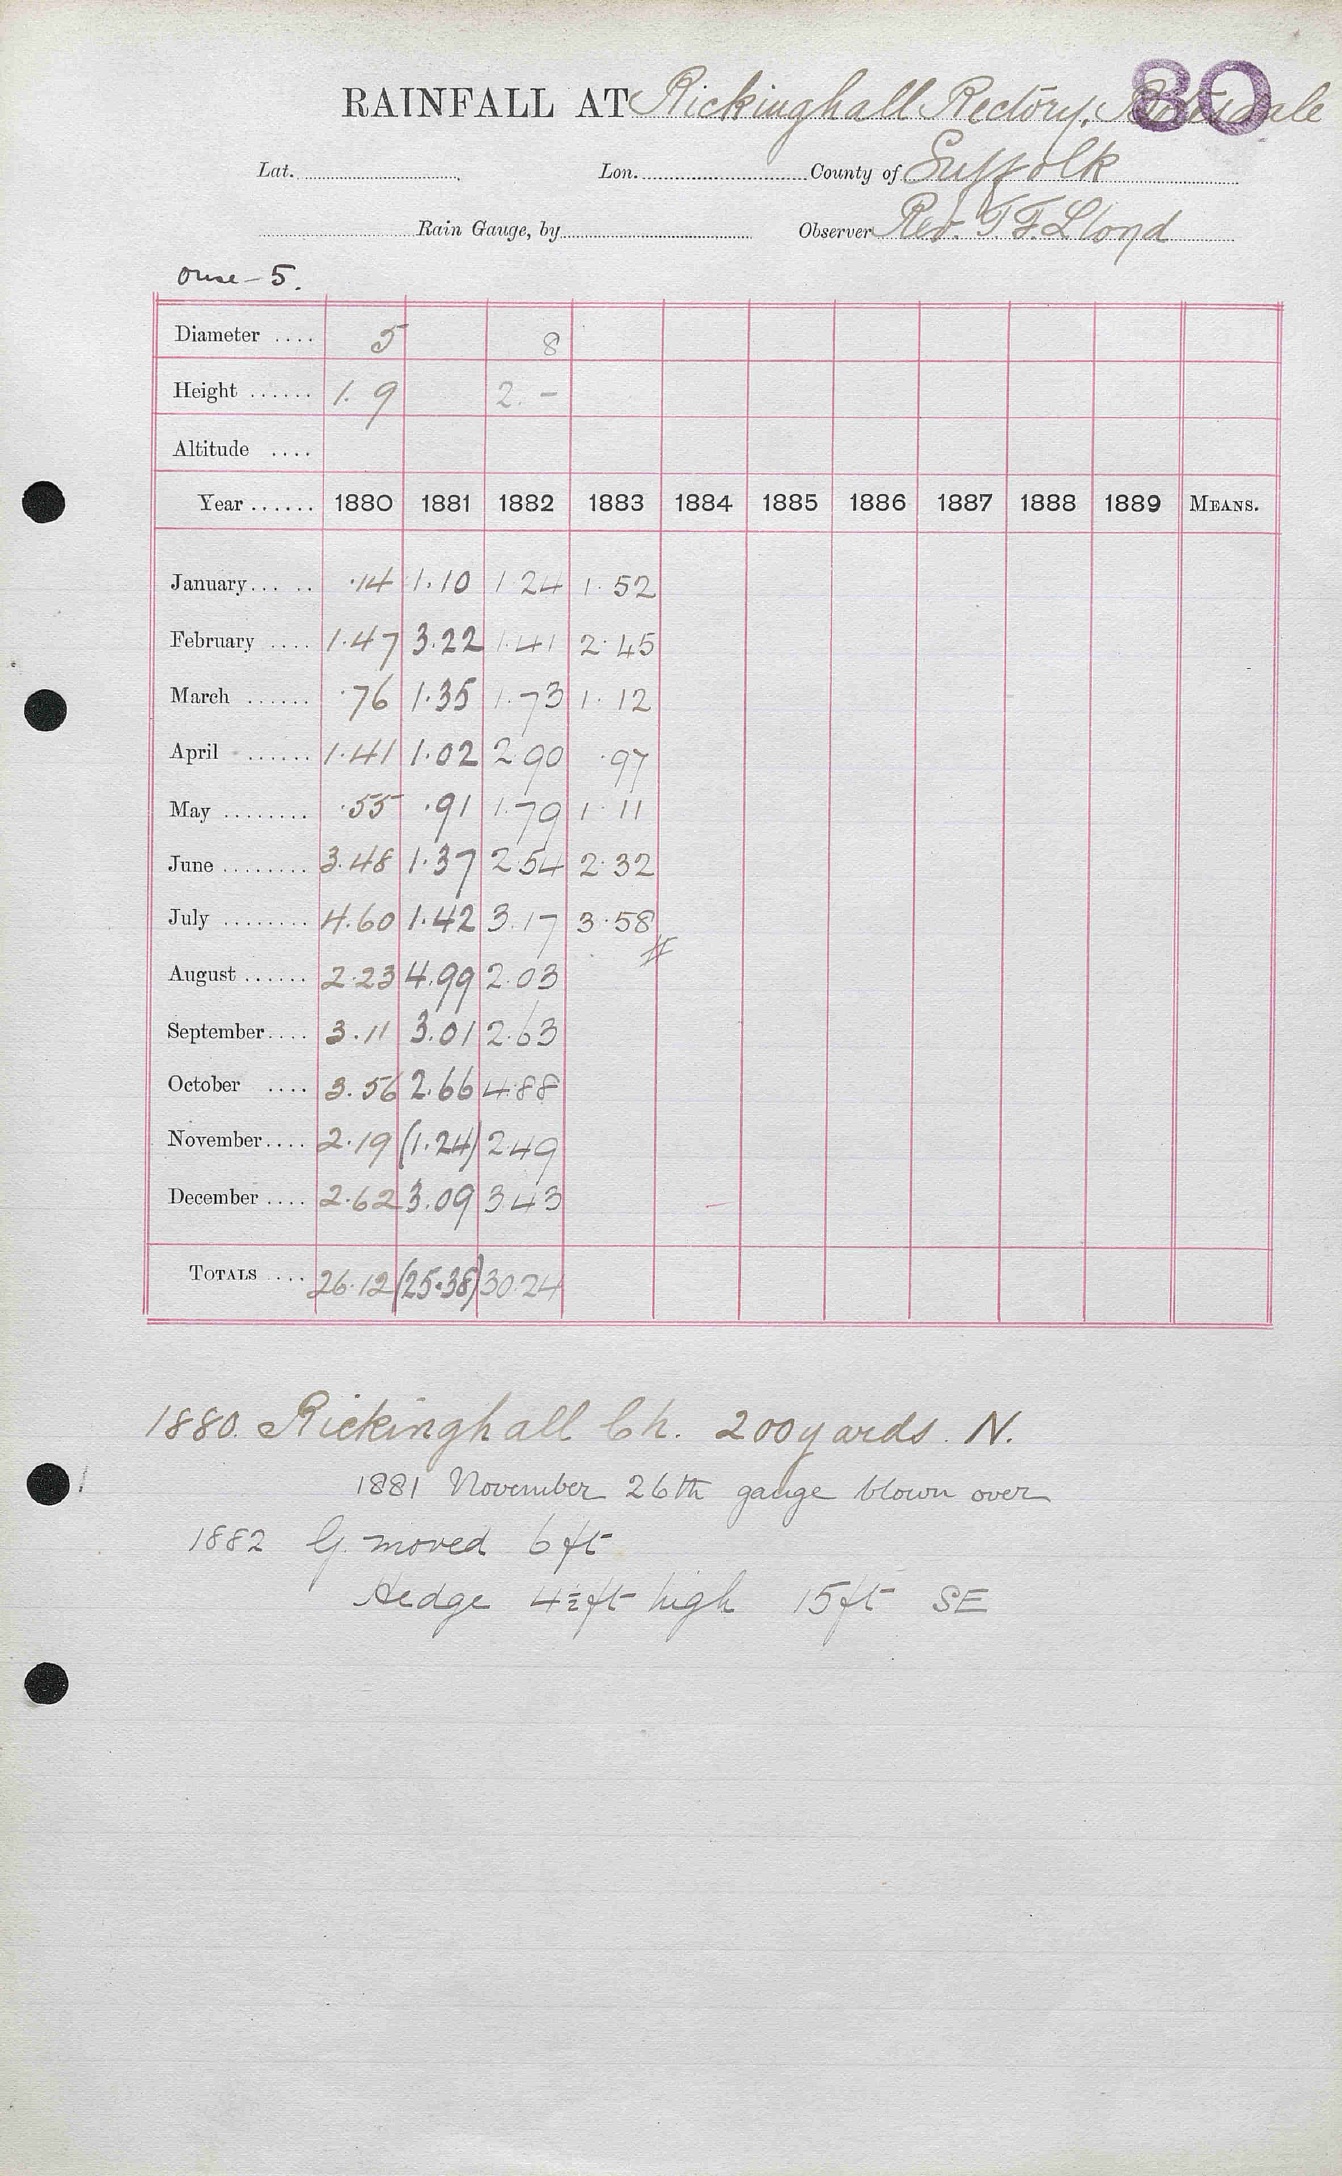 80
RAINFALL AT Rickinghall Rectory, Botesdale
Lat. Lon. County of Suffolk
Rain Gauge, by Observer Rev. T. F. Lloyd
Ouse - 5.
Diameter .... 5 8
Height ...... 1. 9 2. -
Altitude ....
Year ...... 1880 1881 1882 1883 1884 1885 1886 1887 1888 1889 MEANS.
January... .. .14 1.10 1.24 1.52
February .... 1.47 3.22 1.41 2.45
March ...... .76 1.35 1.73 1.12
April ...... 1.41 1.02 2.90 .97
May ........ .55 .91 1.79 1.11
June ........ 3.48 1.37 2.54 2.32
July ........ 4.60 1.42 3.17 3.58
August ...... 2.23 4.99 2.03
September.... 3.11 3.01 2.63
October .... 3.56 2.66 4.88
November.... 2.19 (1.24) 2.49
December .... 2.62 3.09 3.43
TOTALS .... 26.12 (25.38) 30.24
1880. Rickinghall Ch. 200 yards. N.
1881 November 26th gauge blown over
1882 G. moved 6 ft
Hedge 4½ ft high 15 ft SE